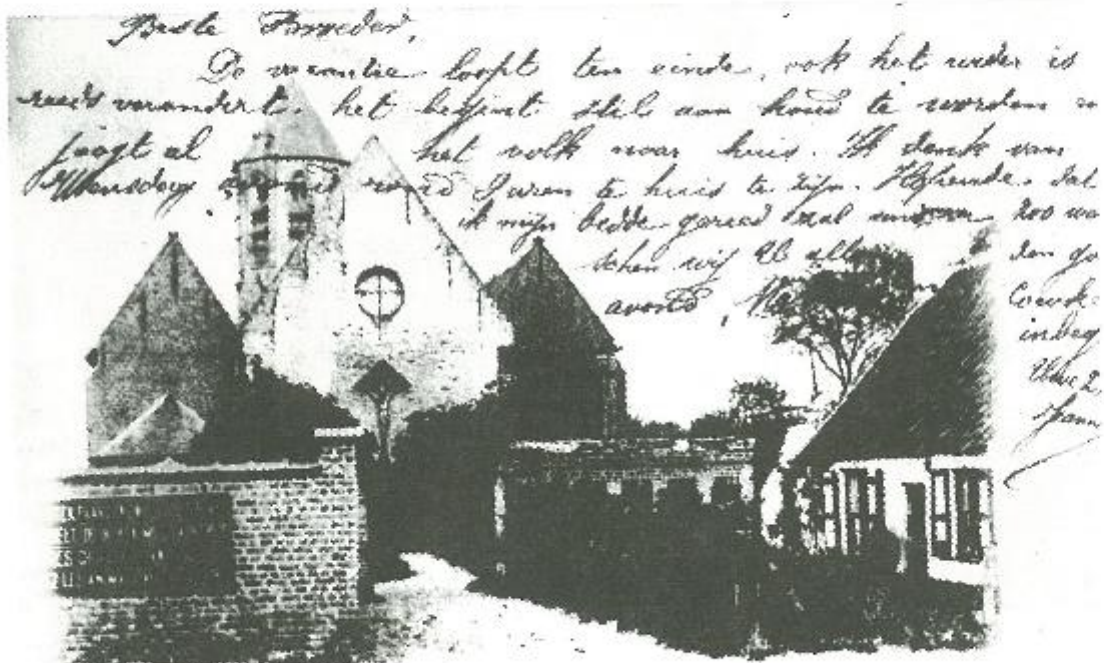 Beste Broeder,
De vacantie loopt ten einde, ook het weder is
reeds verandert. het begint stil aan koud te worden en
jaagt al het volk naar huis. Ik denk van
Wensdag avond rond 9 uren te huis te zijn. Hopende dat
ik mijn bedde gereed zal zoo
schen wij U allen den go
avond,
inbeg
Uwe